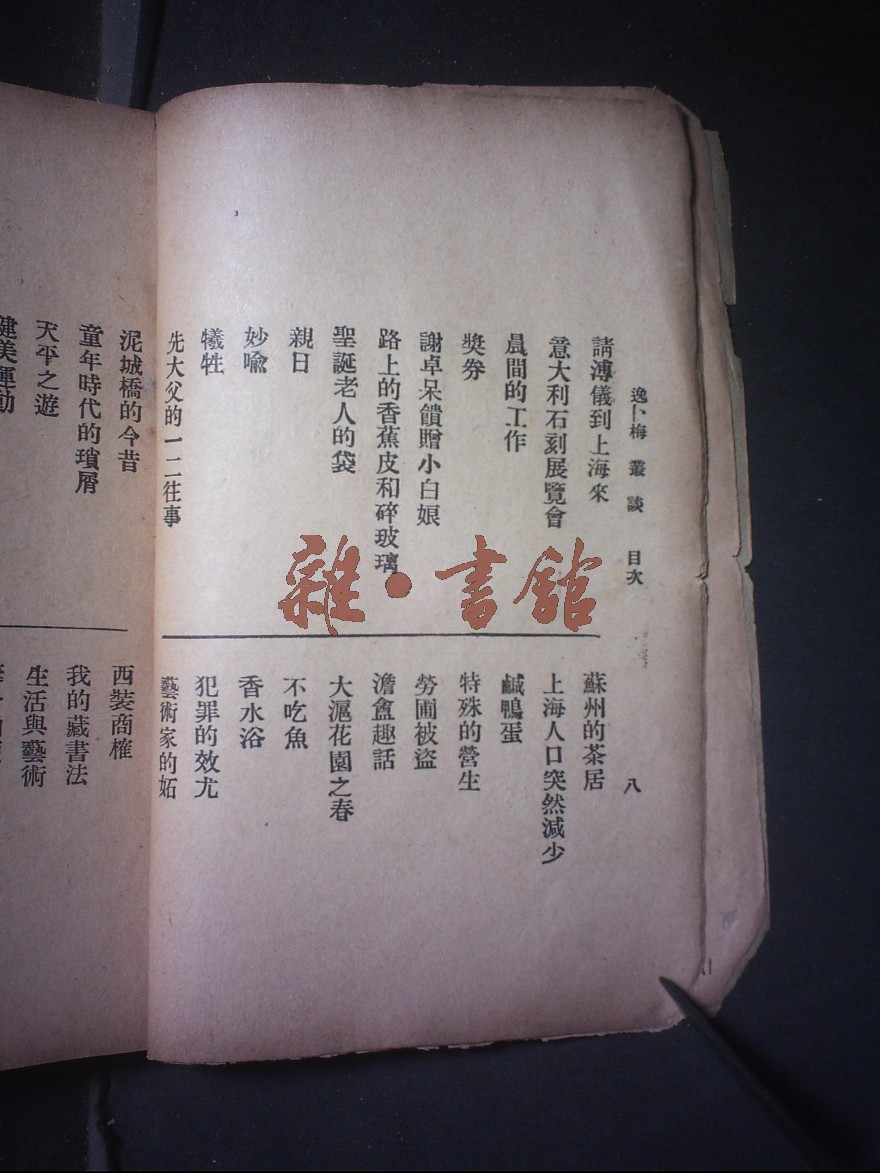 逸梅叢談 目次
八
請溥儀到上海來
意大利石刻展覽會
晨間的工作
獎券
謝卓呆饋贈小白娘
路上的香蕉皮和碎玻璃
聖誕老人的袋
親日
妙喩
犧牲
先大父的一二往事
蘇州的茶居
上海人口突然減少
鹹鴨蛋
特殊的營生
勞圃被盜
澹盦趣話
大滬花園之春
不吃魚
香水浴
犯罪的效尤
藝術家的妬
泥城橋的今昔
童年時代的瑣屑
天平之遊
健美運動
西裝商榷
我的藏書法
生活與藝術
雜·書館